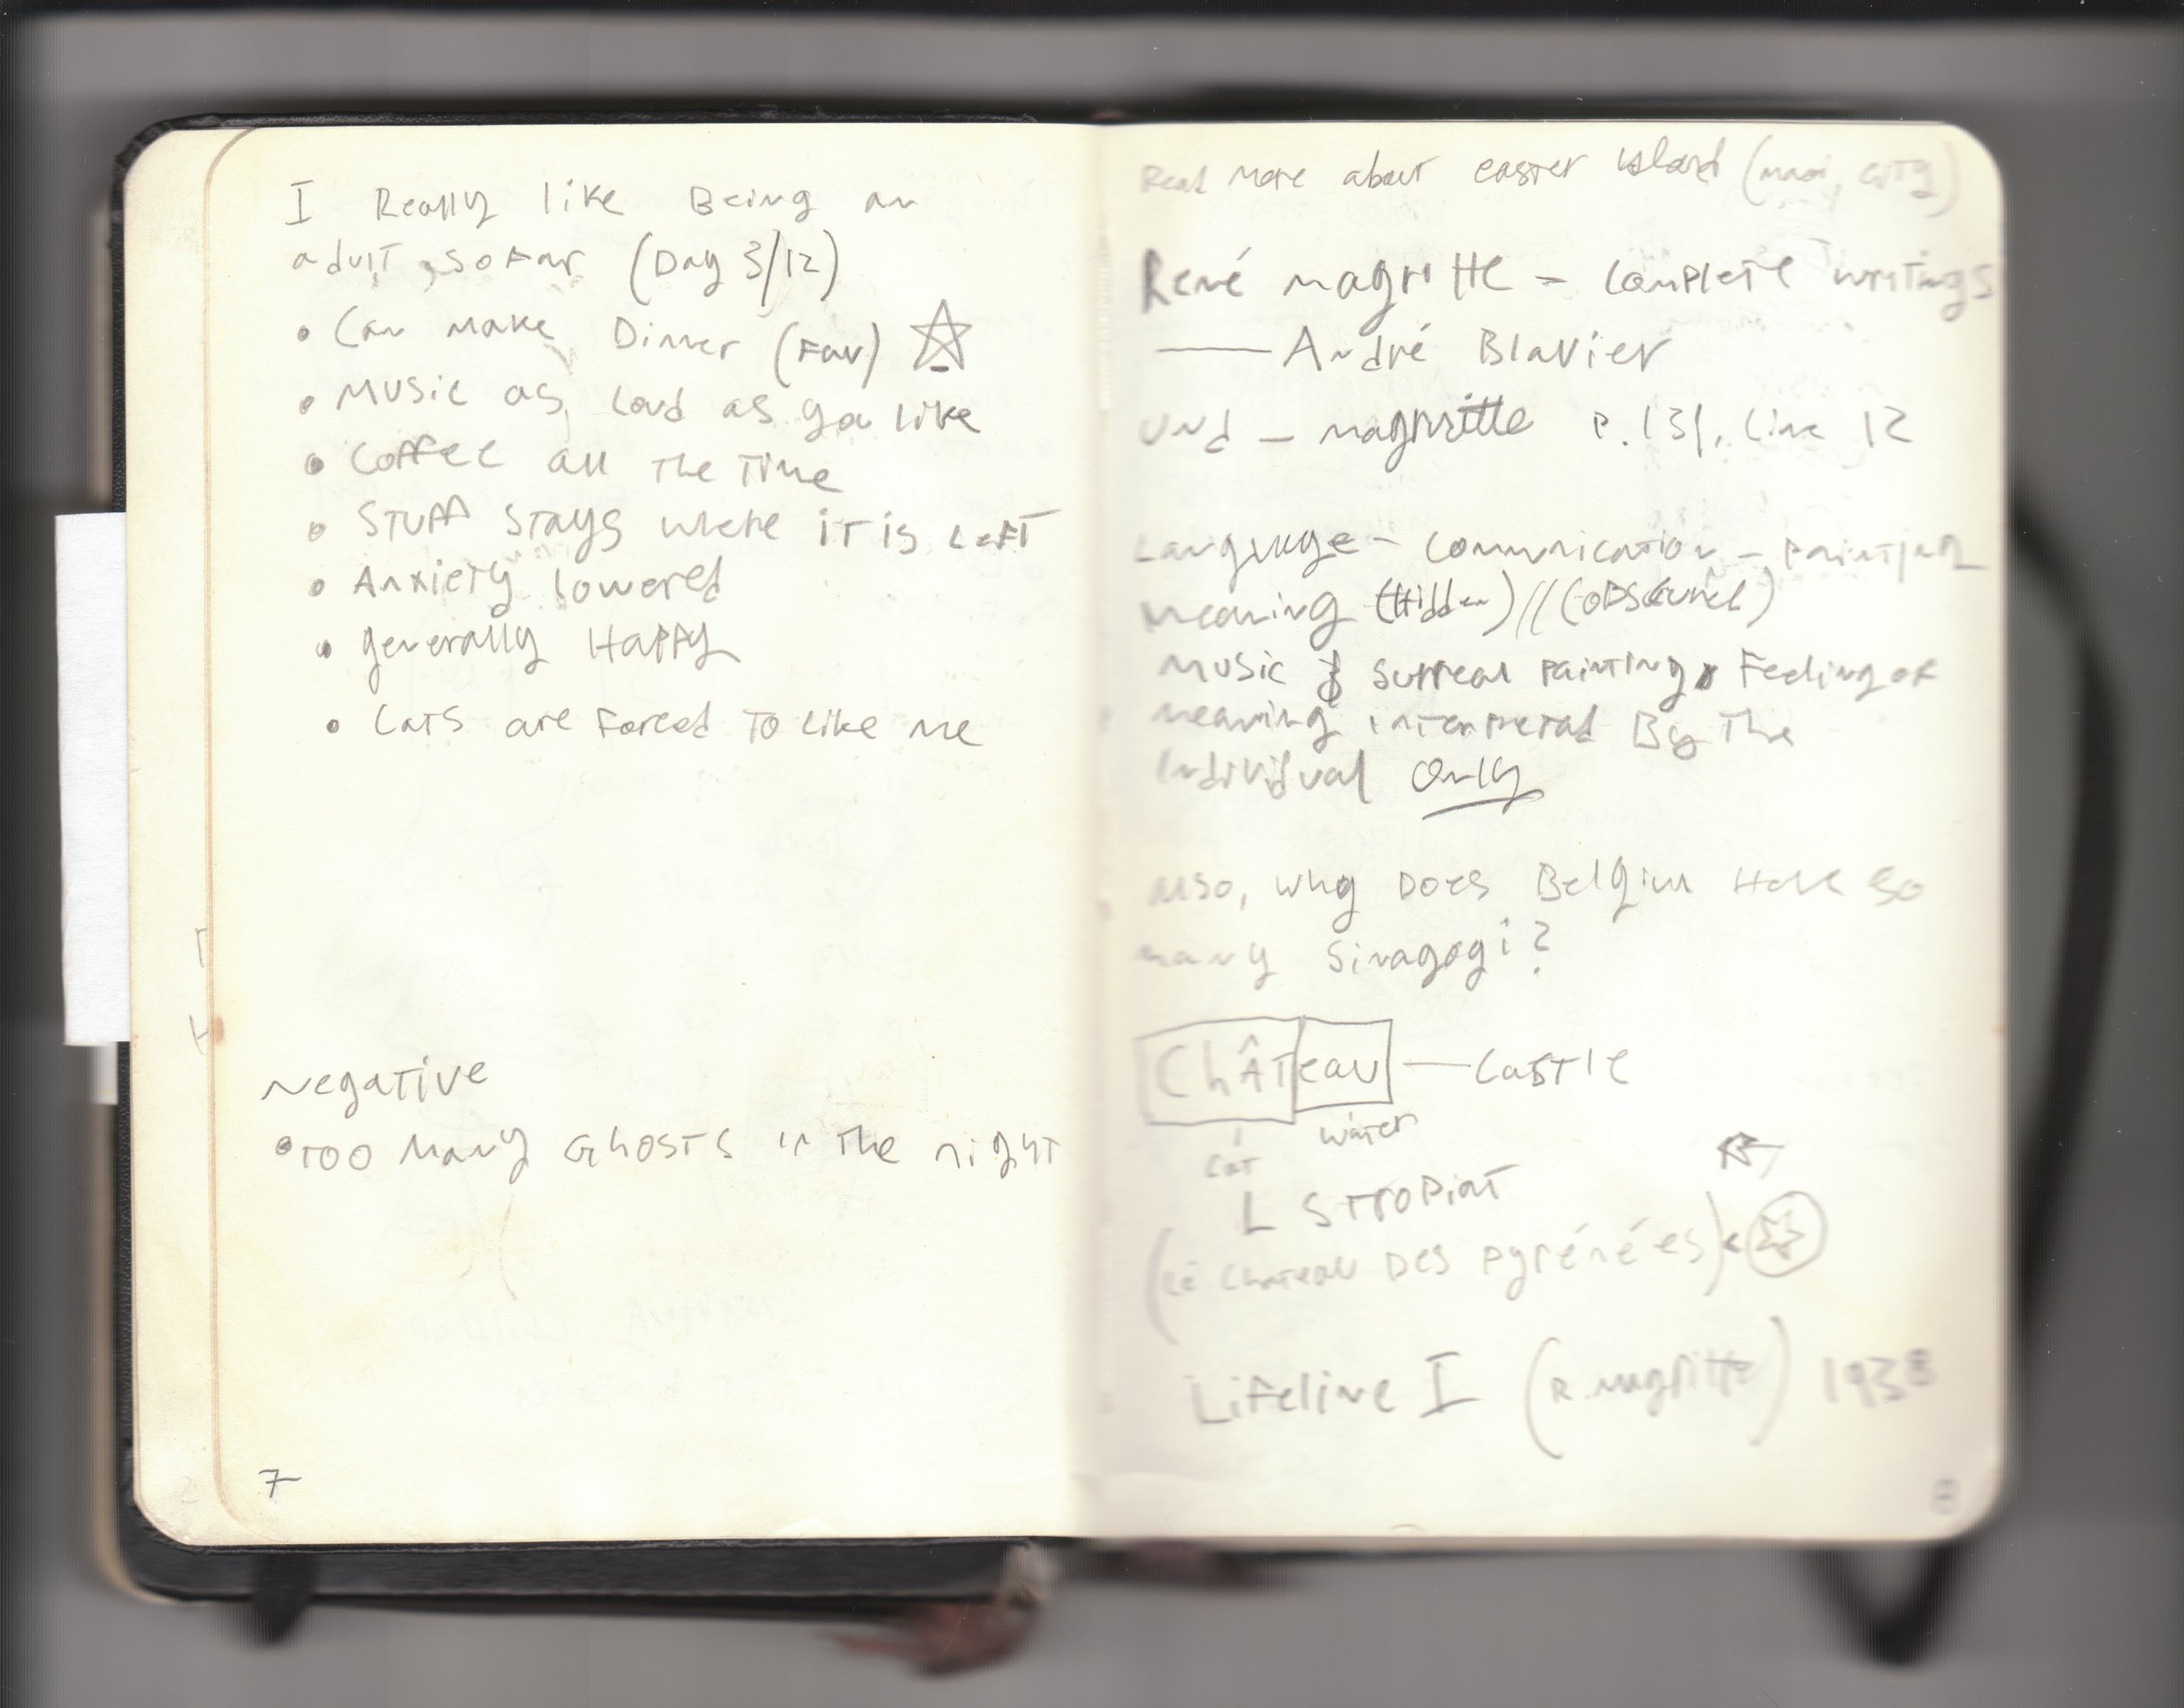 I Really like Being an
adult so far (Day 3/12)
• Can make Dinner (Fav)
• Music as loud as you like
• Coffee all the Time
• Stuff stays where it is Left
• Anxiety lowered
• generally Happy
• Cats are Forced to Like me
Negative
• Too Many Ghosts in the night
7
Read More about easter island (maoi, city)
René Magritte - Complete writings
— André Blavier
Und - Magritte P. 131, Line 12
Language - Communication - Painting
meaning (Hidden)//(obscured)
Music & Surreal Painting Feeling or
meaning interpretad By The
Individual Only
Also, why Does Belgium Have so
many Sinagogi?
ChÂTeau — Castle
Cat water
L STROPiaT
(Le Chateau Des Pyrénées)
Lifeline I (R. Magritte) 1938
8